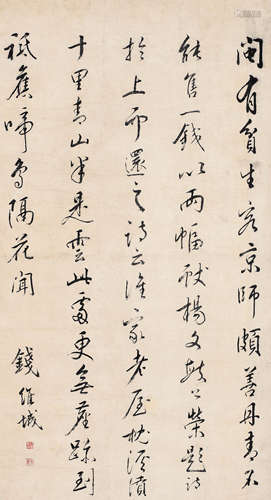 閩有貧生客京師頗善丹青不
能售一錢以兩幅獻楊文敏公榮題詩
於上而還之詩云誰家老屋枕滄浪
十里青山半是雲此處更無塵跡到
祗應啼鳥隔花聞
錢維城